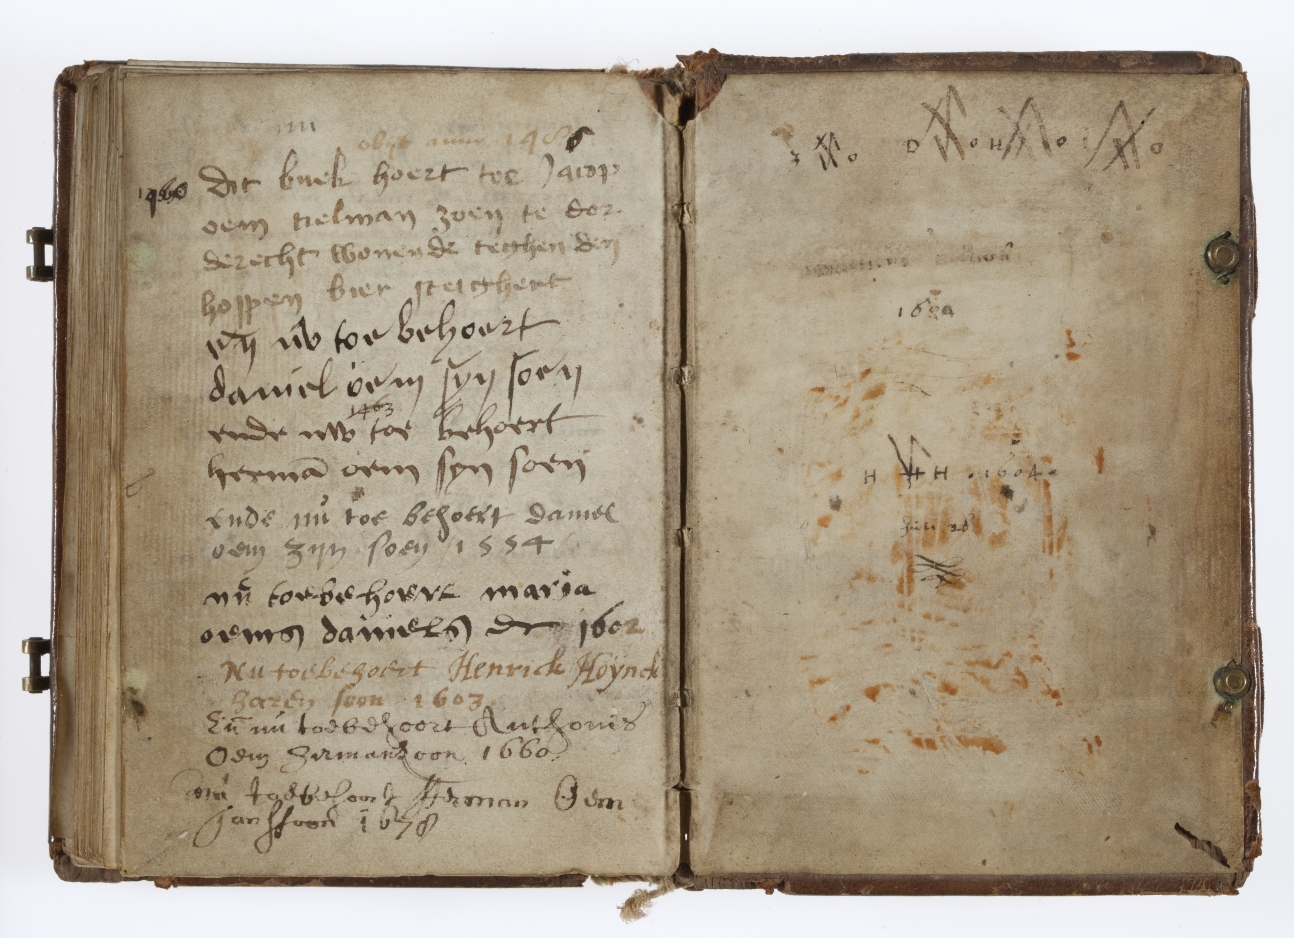 obijt anno 148
1460
dit buek hoert toe Jacop
oem tielman zoen te dor
derecht wonende teghen den
hoppen bier
eñ nv toe behoert
daniel oem syn soen
1463
ende nw toe behoert
hermā oem syn soen
ende nu toe behoert daniel
oem zijn soen 1554
nu toebehoert marija
oems daniels dr 1602
Nu toebehoert Henrick Hoÿnck
haren soon 1603
Eñ nu toebehoort Anthonis
Oem Hermanszoon 1660
nu toebehoort Herman Oem
Janssoon 1678
D o H o o
H H H .1604.